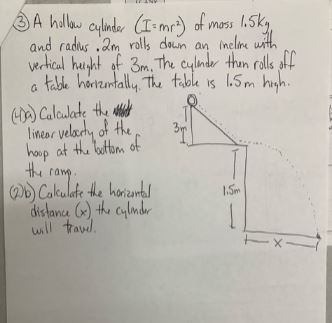 ③ A hollow cylinder (I=mr²) of mass 1.5kg
and radius .2m rolls down an incline with
vertical height of 3m. The cylinder then rolls off
a table horizontally. The table is 1.5m high.
(4)a) Calculate the
linear velocity of the
hoop at the bottom of
the ramp.
(2)b) Calculate the horizontal
distance (x) the cylinder
will travel.
3m
1.5m
x